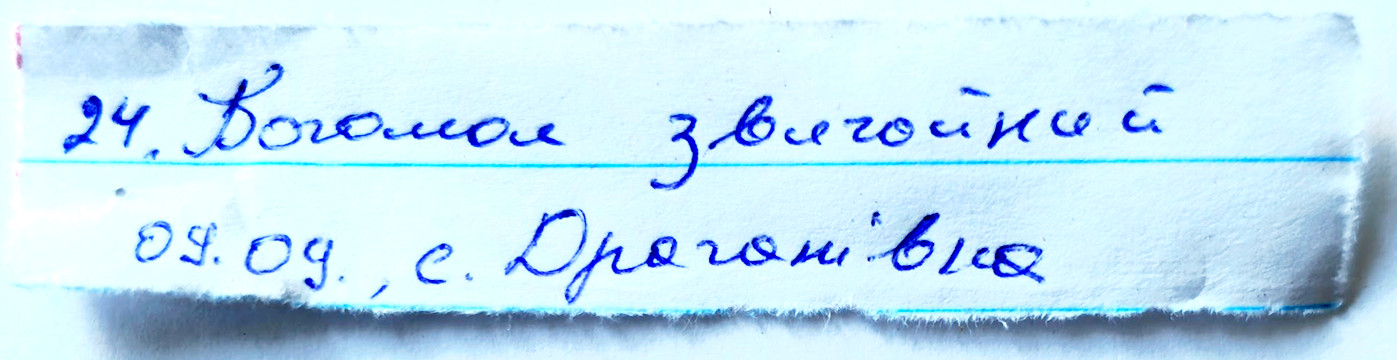 24. Богомол звичайний
09.09., с. Драганівка